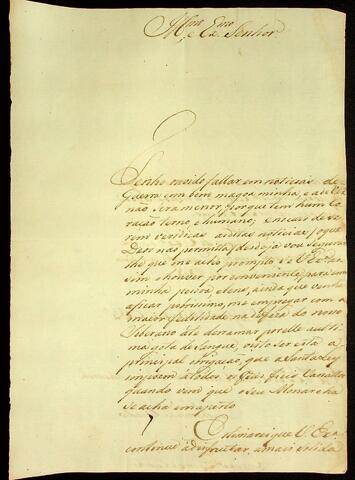 Illmo Exmo
e Senhor
Tenho ouvido fallar em noticias de
Guerra com bem magoa minha, e a de V Exa
não será menor, porque tem hum Co
ração terno, e humano; e no cazo de se
rem veridicas as ditas noticias, o que
Deos não permitta, desde já vou segurar
lhe que me acho prompto se V Exa as
sim o houver por conveniente para
minha pessoa, e bens, ainda que venha
a ficar pobrissimo, me empregar com a
maior fidelidade na defeza do nosso
Soberano até derramar por elle a ulti
ma gota de Sangue, visto ser esta a
principal obrigação, que a Santa Ley
impoem a todos os fieis
quando vem que o seu Monarcha
se acha em aperto
Estimarei que V. Exa
continue a disfrutar a mais solida